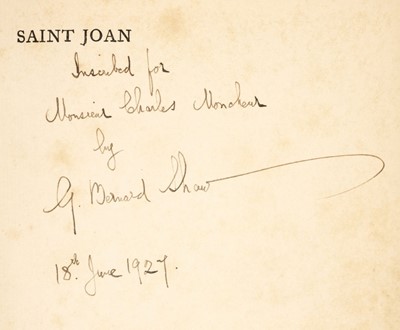 SAINT JOAN
Inscribed for
Monsieur Charles Moncheur
by
G. Bernard Shaw
18th June 1927.